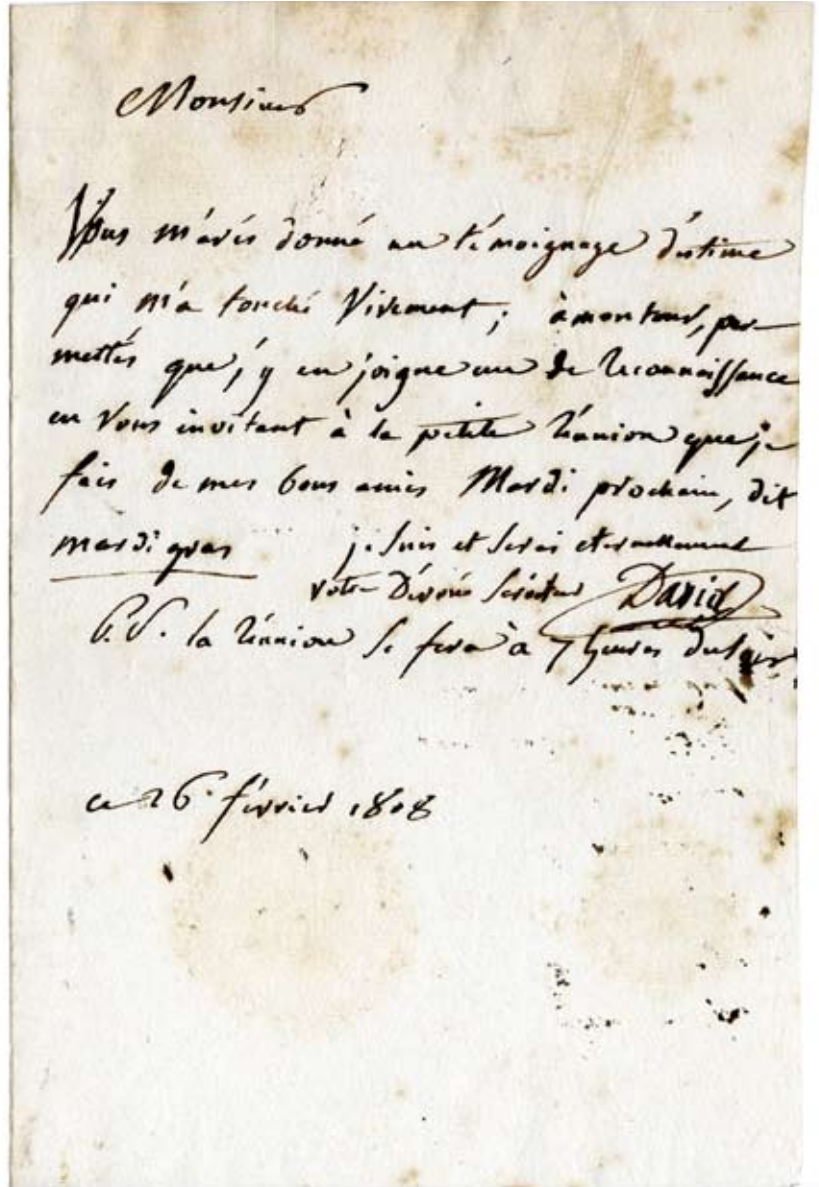 Monsieur
Vous m'avés donné un témoignage d'estime
qui m'a touché Vivement; à mon tour, per-
mettés que j'y en joigne un de reconnaissance
en Vous invitant à la petite réunion que je
fais de mes bons amis Mardi prochain, dit
mardi gras je suis et serai eternellement
votre Dévoué serviteur David
P.S. la réunion se fera à 7 heures du soir.
ce 26 février 1808